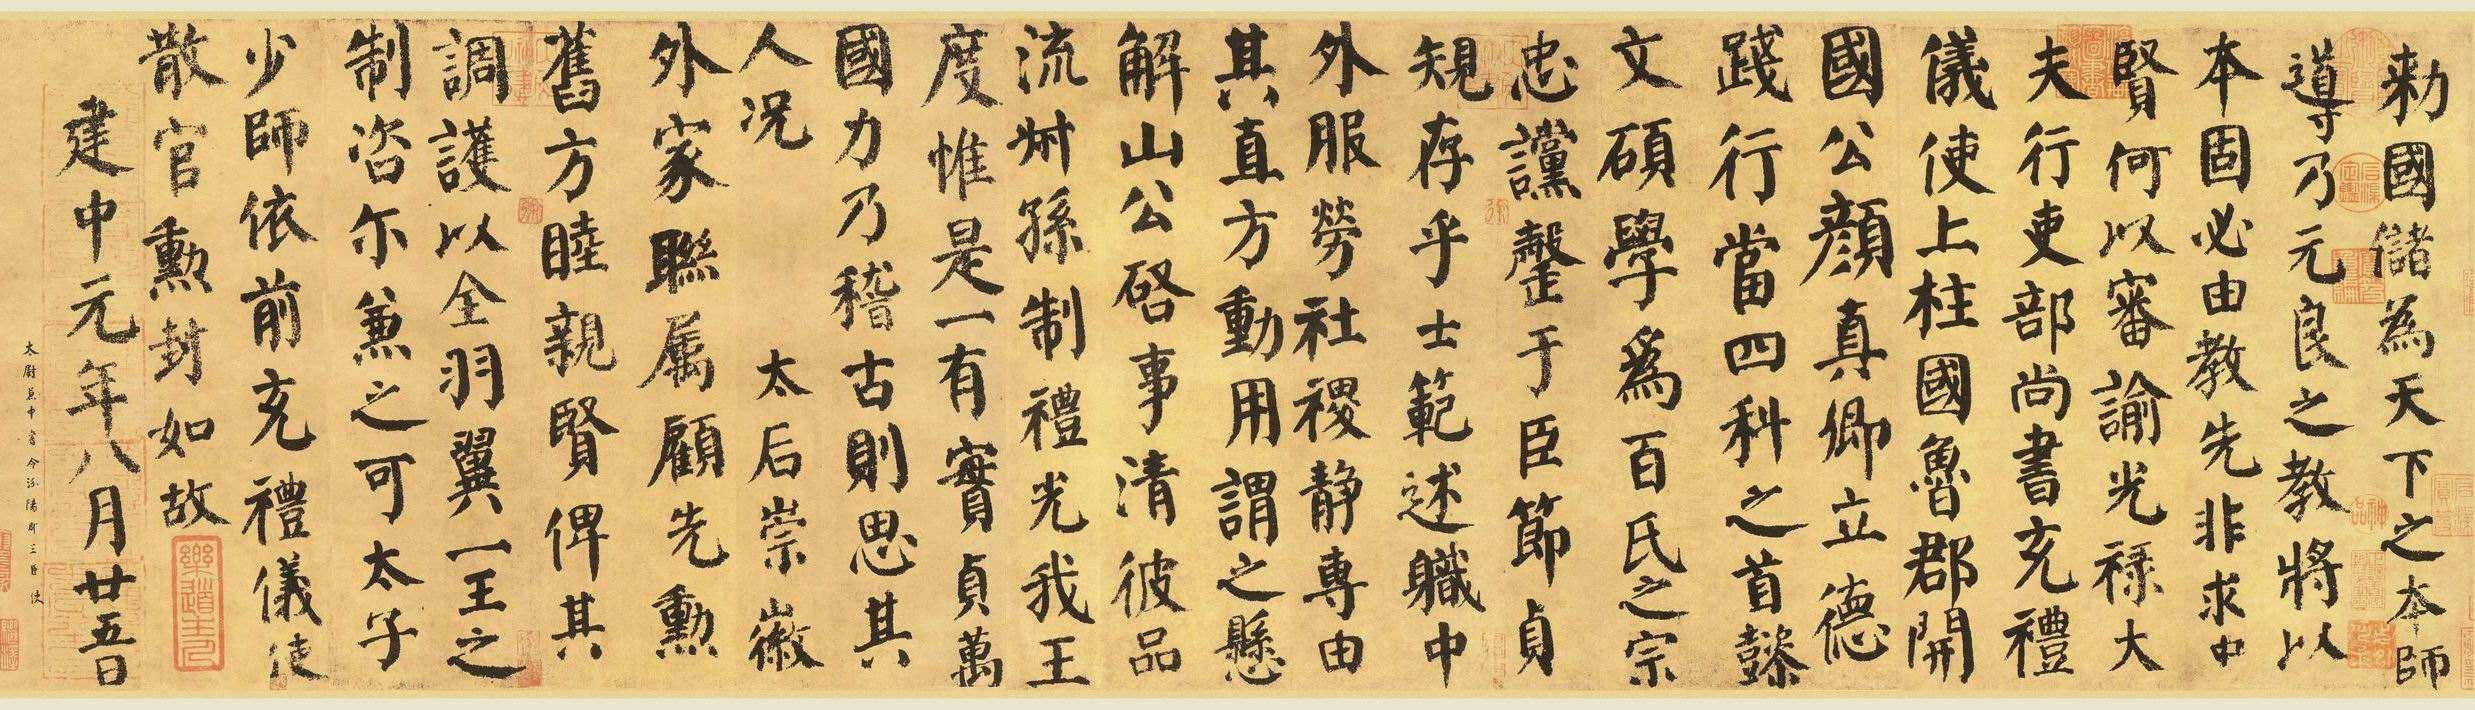 勅國儲為天下之本師
導乃元良之教將以
本固必由教先非求中
賢何以審諭光祿大
夫行吏部尚書充禮
儀使上柱國魯郡開
國公顏真卿立德
踐行當四科之首懿
文碩學為百氏之宗
忠讜罄于臣節貞
規存乎士範述職中
外服勞社稷靜專由
其直方動用謂之懸
解山公啓事清彼品
流叔孫制禮光我王
度惟是一有實貞萬
國力乃稽古則思其
人況 太后崇徽
外家聯屬顧先勳
舊方睦親賢俾其
調護以全羽翼一王之
制咨尓兼之可太子
少師依前充禮儀使
散官勳封如故
建中元年八月廿五日
太尉兼中書令汾陽郡王臣使
樂道主人